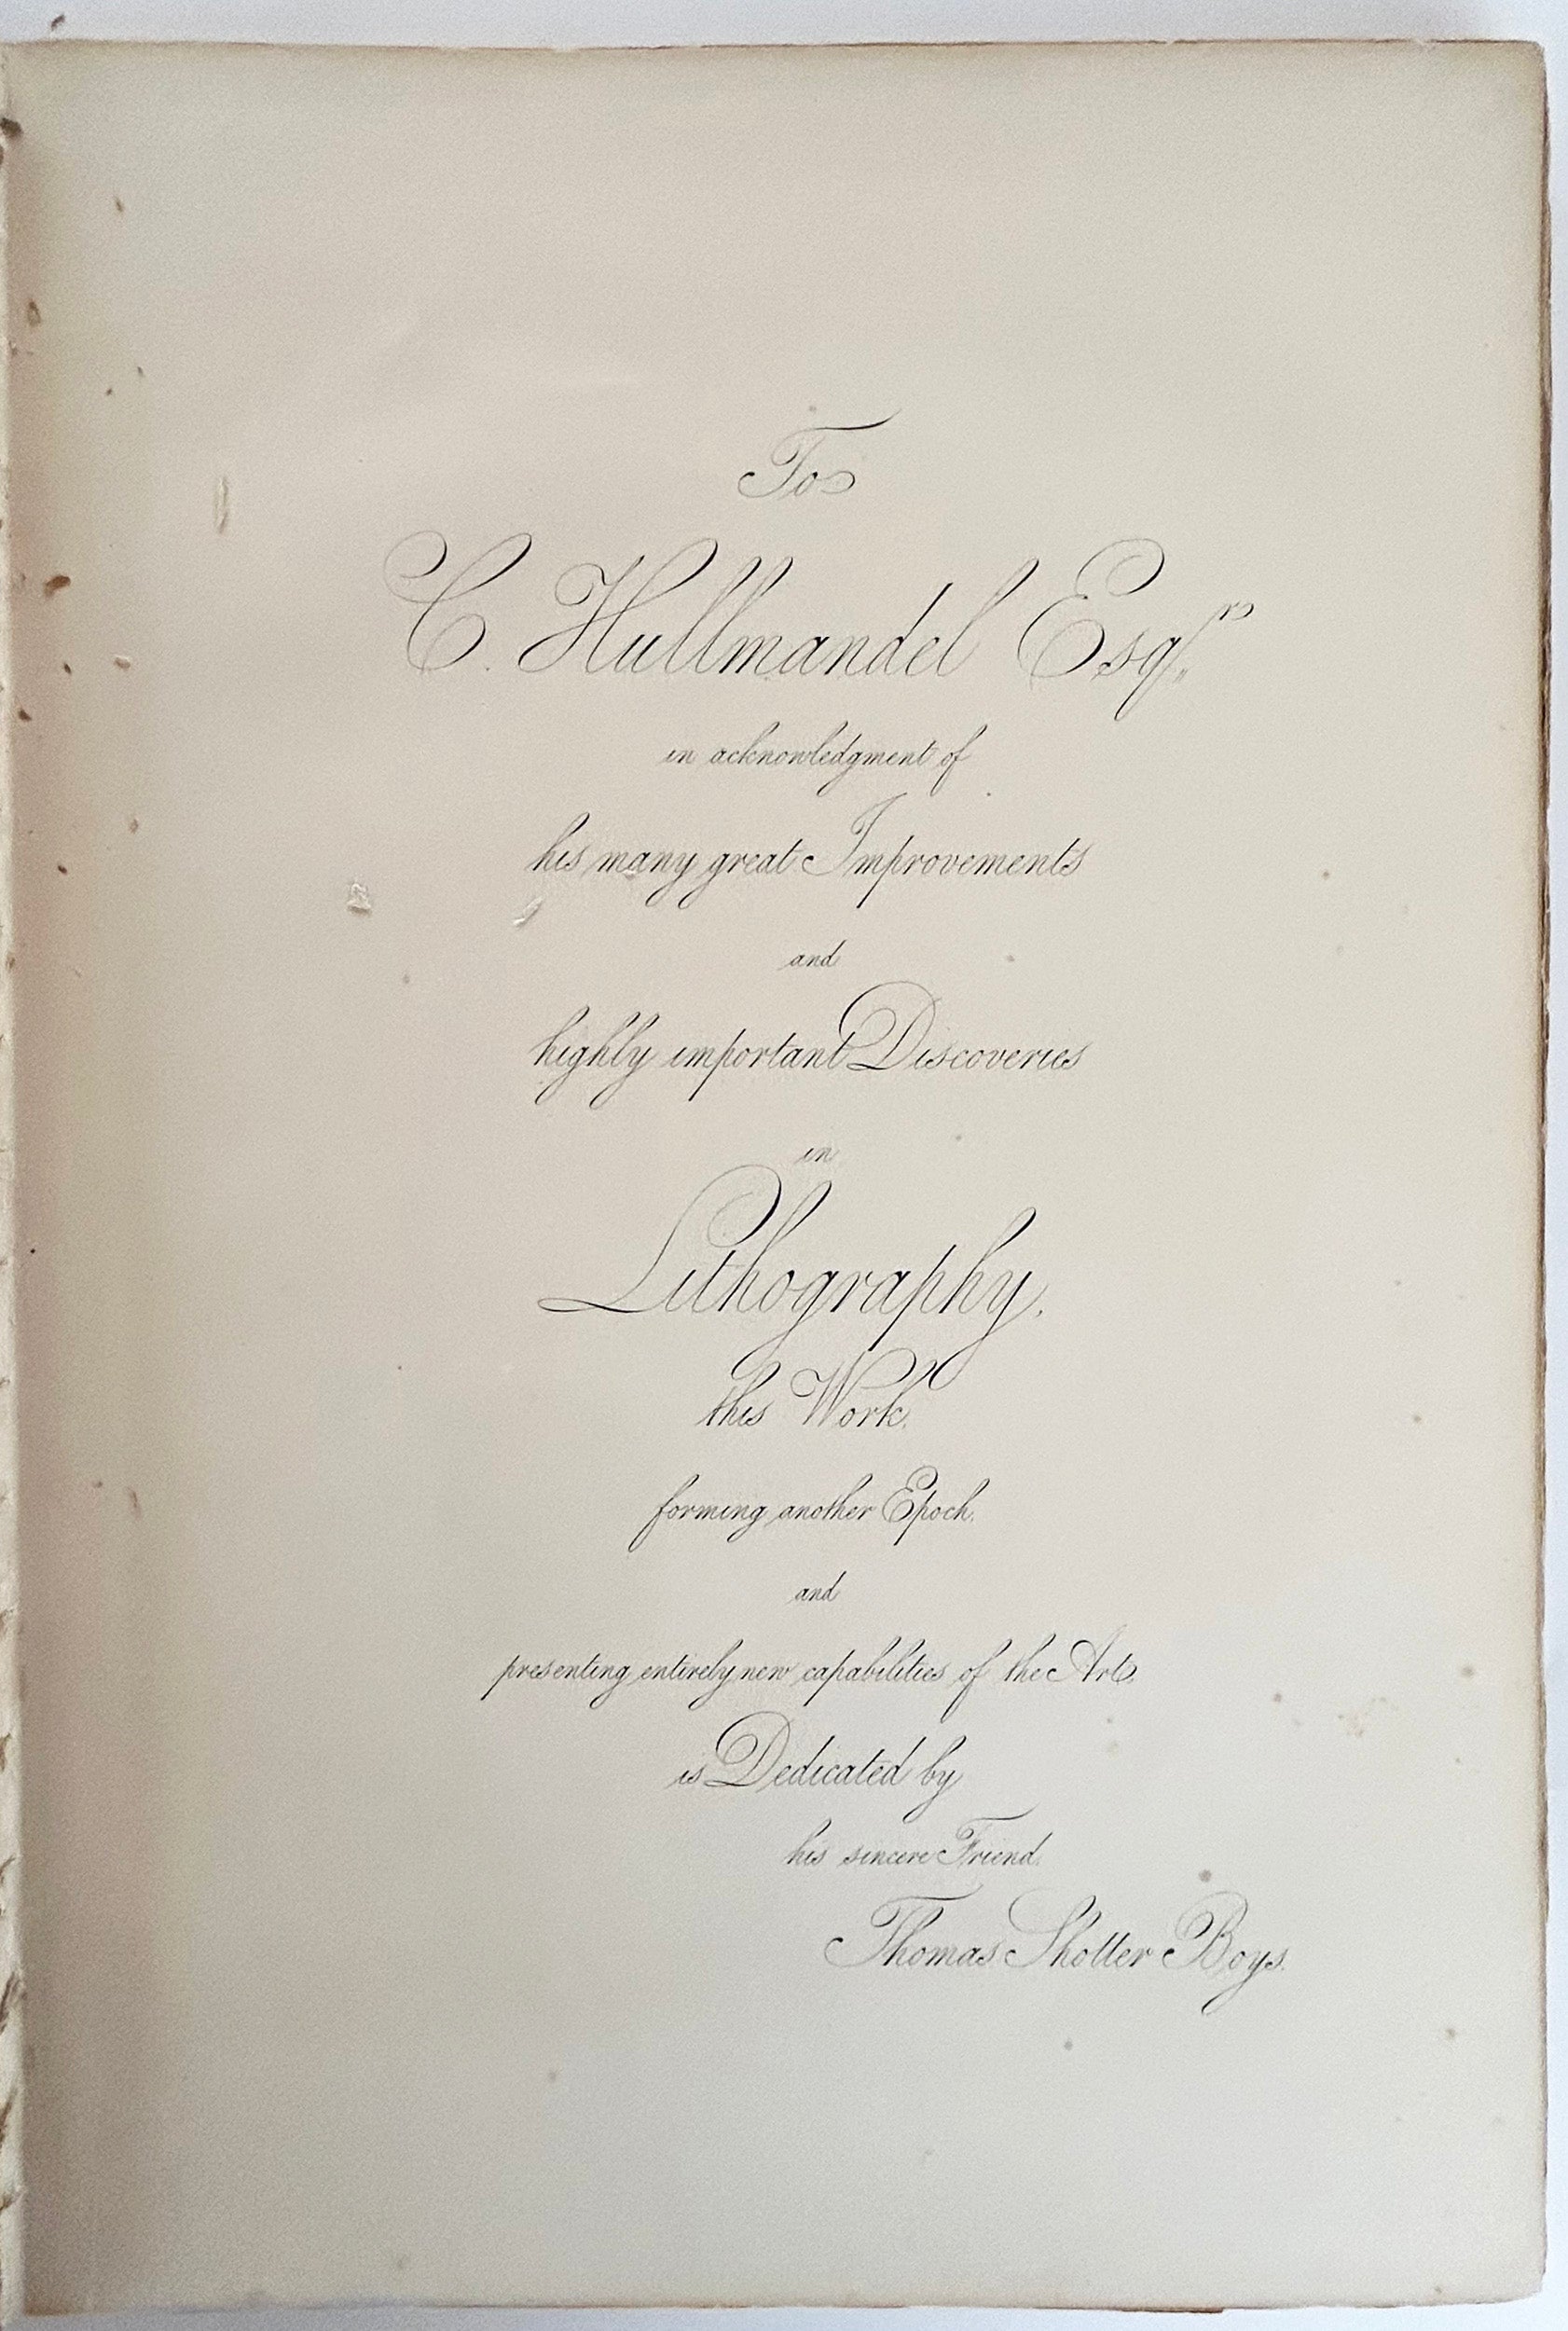 To
C. Hullmandel Esqr.
in acknowledgment of
his many great Improvements
and
highly important Discoveries
in
Lithography,
this Work,
forming another Epoch,
and
presenting entirely new capabilities of the Art,
is Dedicated by
his sincere Friend,
Thomas Shotter Boys.